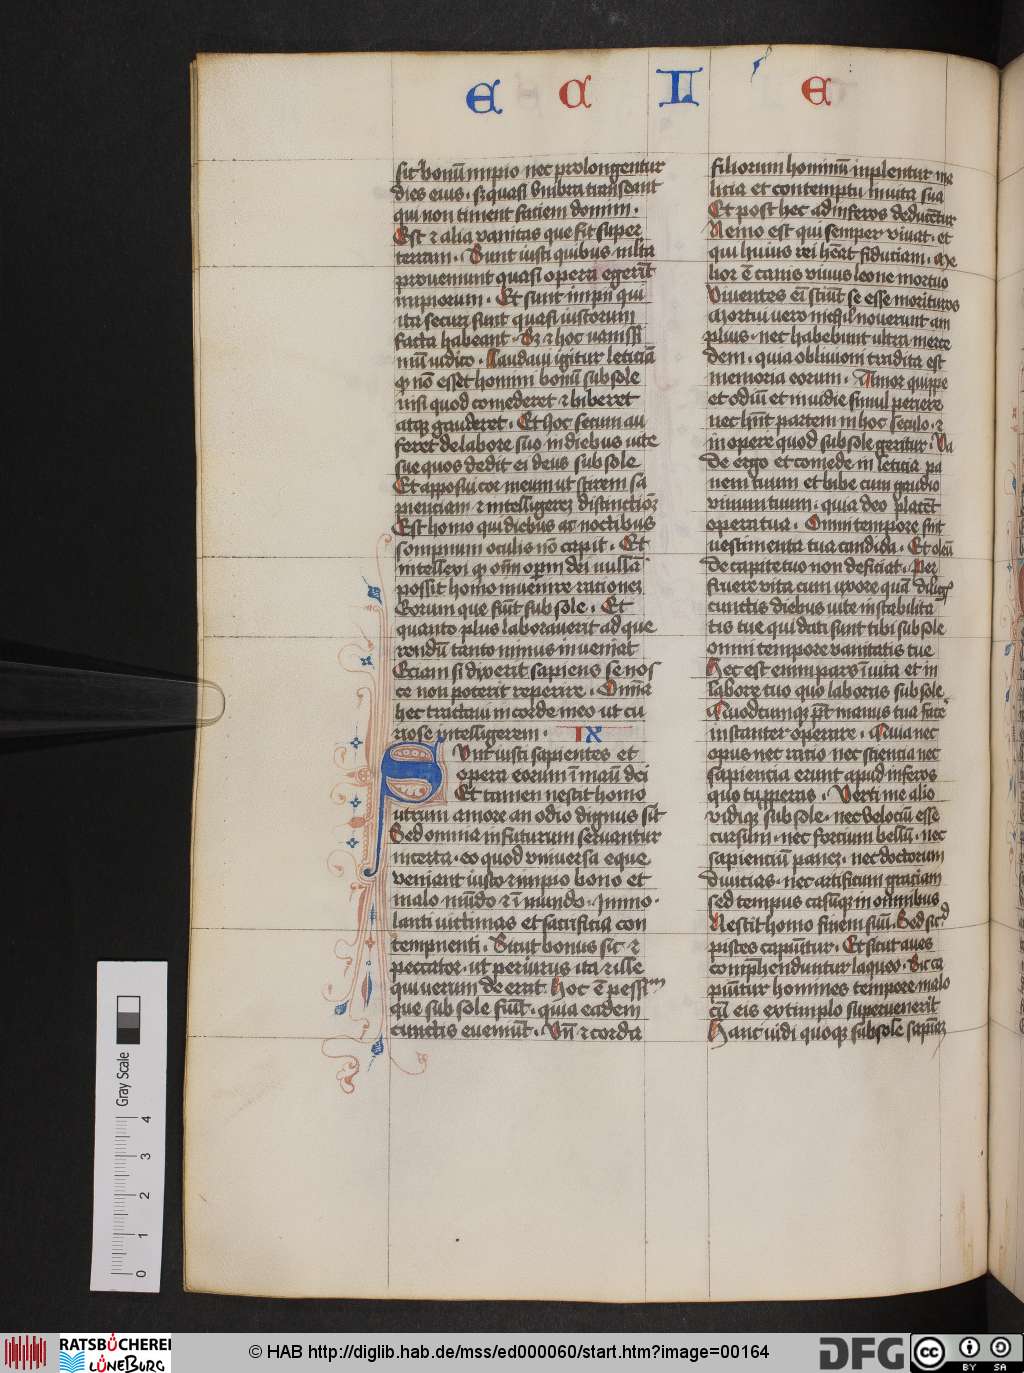 E C L E
sit bonū impio nec prolongentur
dies eius · sꝫ quasi vmbra transeant
qui non timent faciem domini ·
Est ⁊ alia vanitas que fit super
terram · Sunt iusti quibus mlta
proueniunt quasi opera egerīt
impiorum · Et sunt impii qui
ita securi sunt quasi iustorum
facta habeant · Sꝫ ⁊ hoc vanissi
mū iudico · Laudaui igitur leticiā
qꝫ nō esset homini bonū sub sole
nisi quod comederet ⁊ biberet
atqꝫ gauderet · Et hoc secum au
feret de labore suo in diebus uite
sue quos dedit ei deus sub sole
Et apposui cor meum ut scirem sa
pienciam ⁊ intelligerē distinctiōē
Est homo qui diebus ac noctibus
sompnum oculis nō capit · Et
intellexi qꝫ oīm operū dei nullā
possit homo inuenire racionē
Eorum que fiūt sub sole · Et
quanto plus laborauerit ad que
rendū tanto minus inueniat
Eciam si dixerit sapiens se nos
ce non poterit reperire · Omnia
hec tractaui in corde meo ut cu
riose intelligerem · IX
Sunt iusti sapientes et
opera eorum ī manū dei
Et tamen nescit homo
utrum amore an odio dignus sit
Sed omnia in futurum seruantur
incerta · eo quod vniuersa eque
veniant iusto ⁊ impio bono et
malo mūdo ⁊ ī mundo · Immo
lanti uictimas et sacrificia con
tempnenti · Sicut bonus sic ⁊
peccator · ut periurus ita ⁊ ille
qui uerum deierat · Hoc ē pessimū
que sub sole fiūt · quia eadem
cunctis eueniūt · Vn̄ ⁊ corda
filiorum hominū inplentur ma
licia et contemptu in uita sua
Et post hec ad inferos deducētur
Nemo est qui semper viuat · et
qui huius rei hēat fiduciam · Me
lior ē canis viuus leone mortuo
Viuentes eī sciūt se esse morituros
Mortui uero nichil nouerunt am
plius · nec habebunt ultra merce
dem · quia obliuioni tradita est
memoria eorum · Amor quippe
et odiū et inuidie simul periere
nec hn̄t partem in hoc seculo · ⁊
in opere quod sub sole geritur · Va
de ergo et comede in leticia pa
nem tuum et bibe cum gaudio
vinum tuum · quia deo placēt
opera tua · Omni tempore sint
uestimenta tua candida · Et oleū
de capite tuo non deficiat · Per
fruere vita cum uxore quā diligis
cunctis diebus uite instabilita
tis tue qui dati sunt tibi sub sole
omni tempore vanitatis tue
Hec est enim pars ī uita et in
labore tuo quo laboras sub sole
Quodcumqꝫ pōt manus tua face
instanter operare · Quia nec
opus nec racio nec sciencia nec
sapiencia erunt apud inferos
quo tu pperas · Verti me alio
vidiqꝫ sub sole · nec velociū esse
cursum · nec forcium bellū · nec
sapienciū panē · nec doctorum
diuicias · nec artificum graciam
sed tempus casūqꝫ in omnibus
Nescit homo finem suū · Sed sicᵈ
pisces capiūtur · Et sicut aues
compͥhenduntur laqueo · Sic ca
piūtur homines tempore malo
cū eis extimplo superuenerit
Hanc uidi quoqꝫ sub sole sapiīaꝫ
Gray Scale
4
3
2
1
0
RATSBÜCHEREI
LÜNEBURG
© HAB http://diglib.hab.de/mss/ed000060/start.htm?image=00164
DFG
cc BY SA